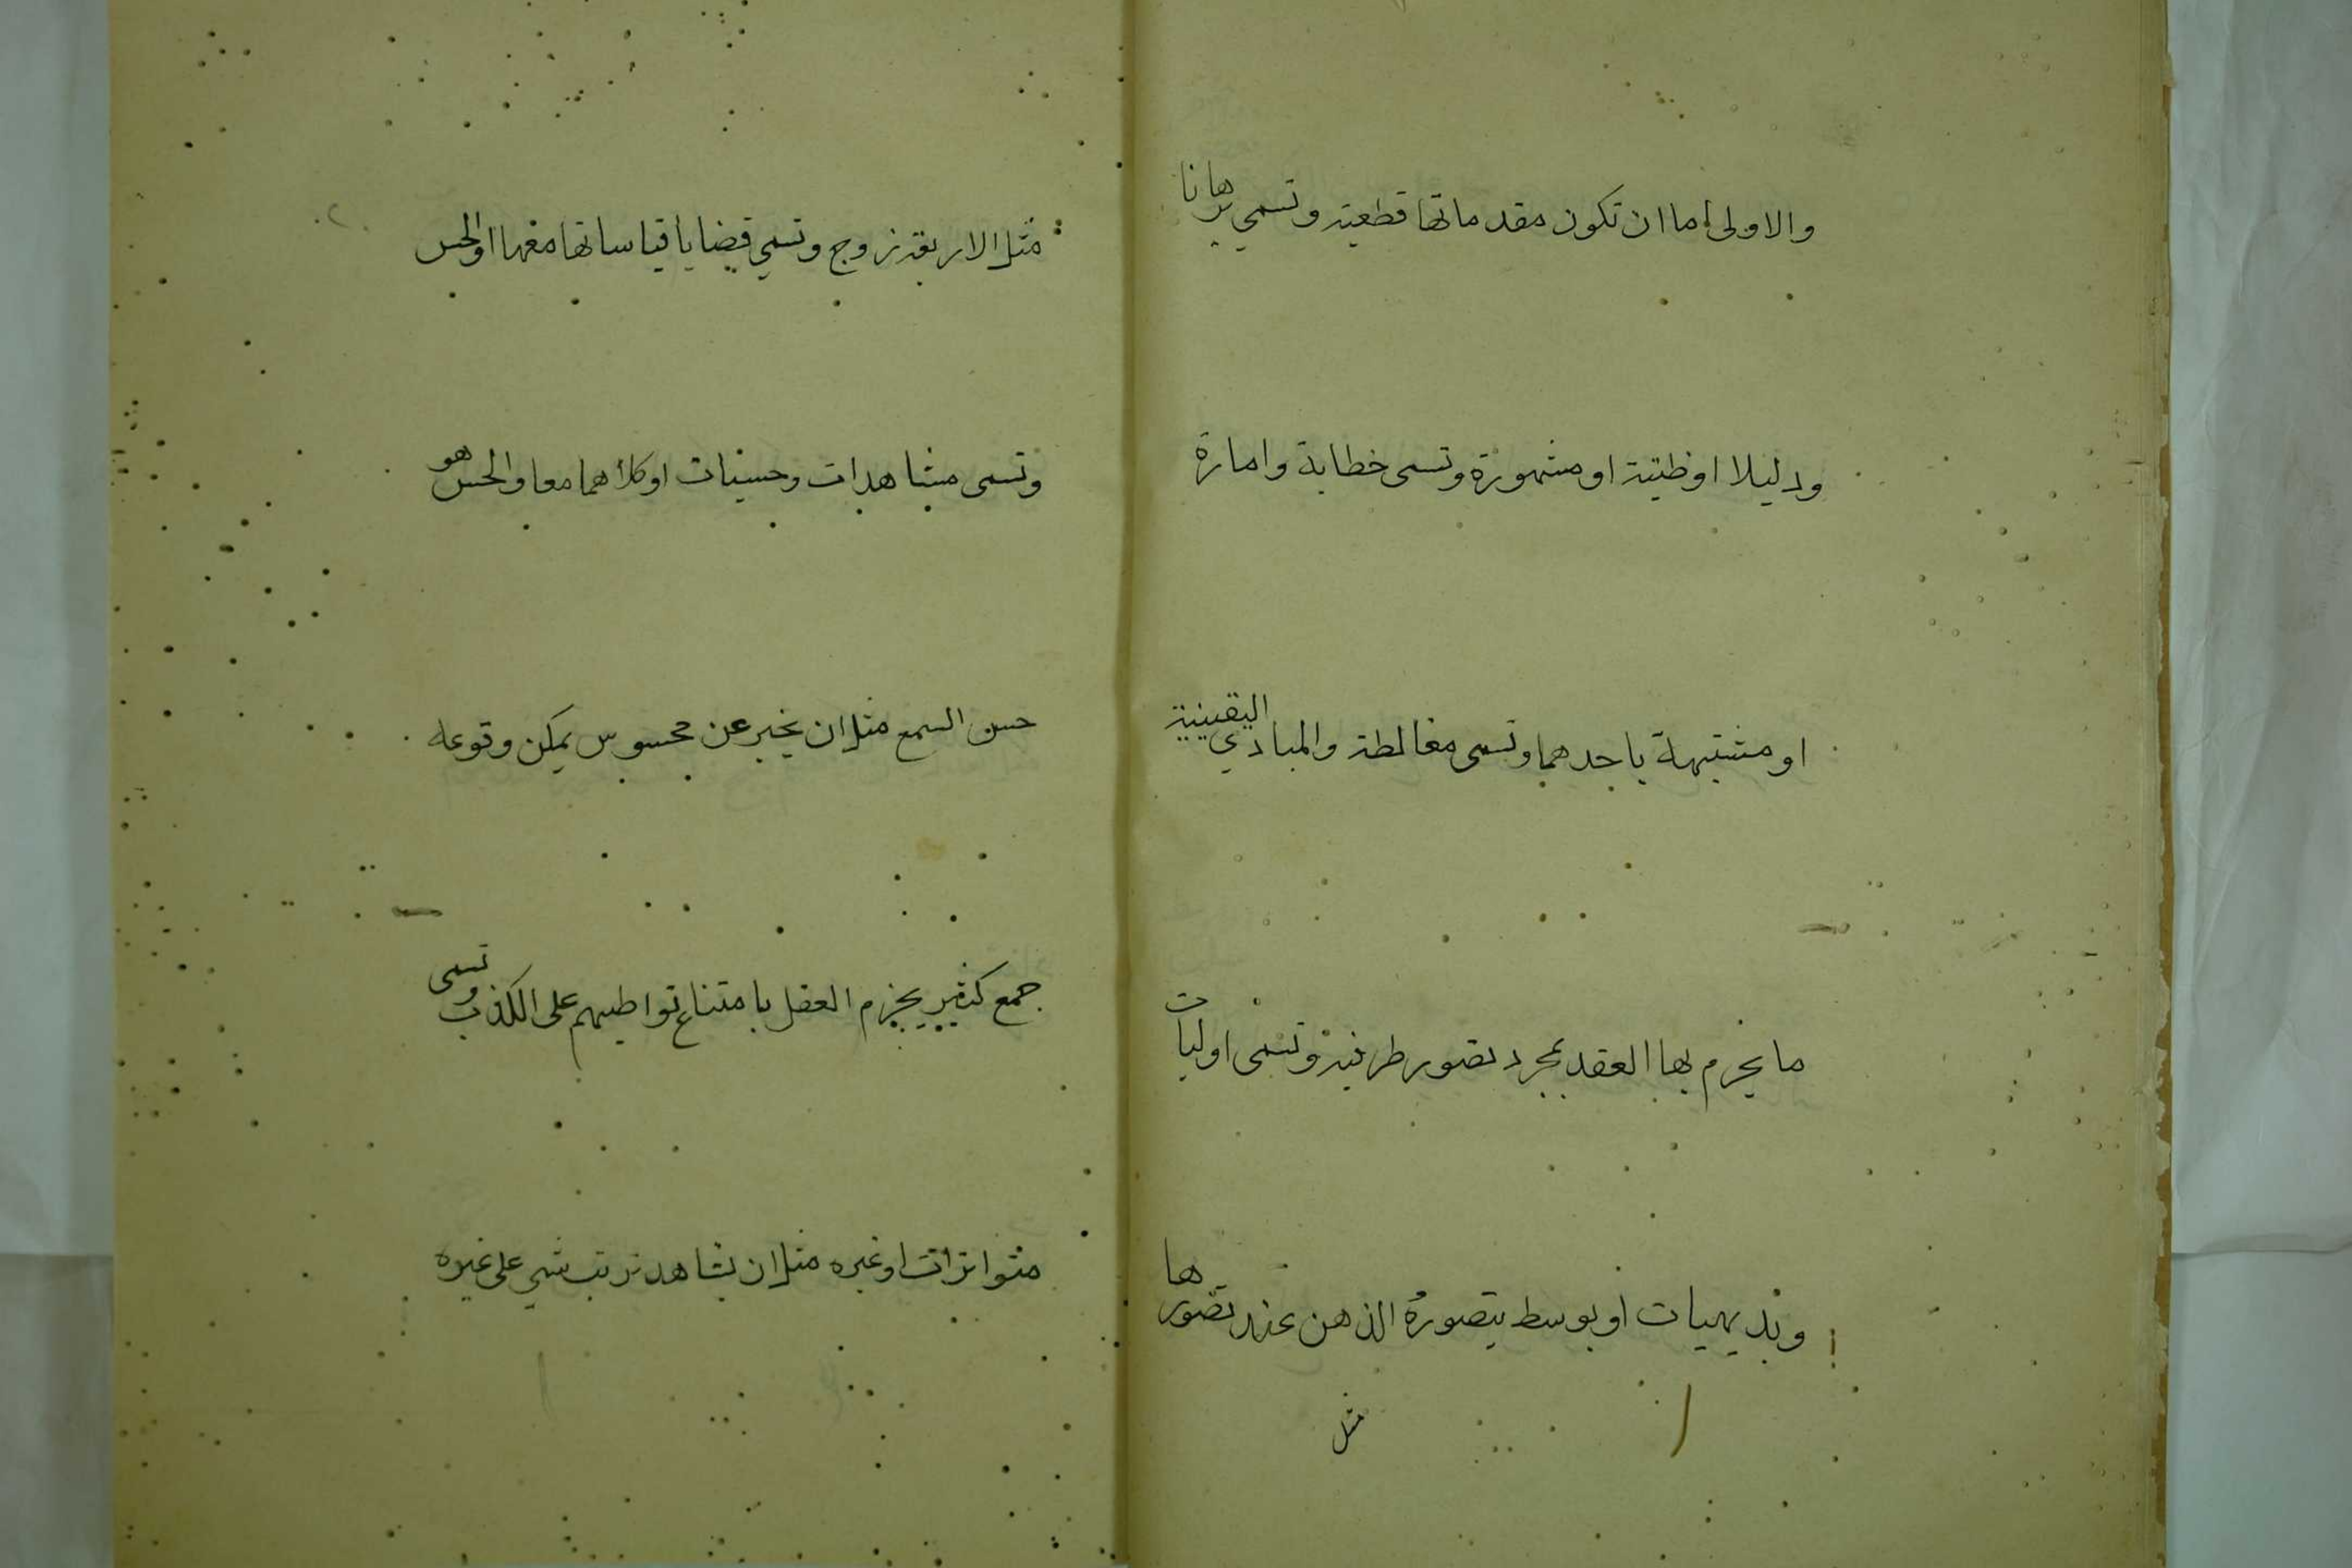 والاولى اما ان تكون مقدماتها قطعية وتسمي برهانا
ودليلا او ظنية او مشهورة وتسمى خطابة وامارة
او مشتبهة باحدهما وتسمى مغالطة والمبادي اليقينية
ما يجزم بها العقد بمجرد تصور طرفيه وتسمى اوليات
وبديهيات او بوسط يتصوره الذهن عند تصورها
مثل
مثل الاربعة زوج وتسمي قضايا قياساتها معها او الحس
وتسمى مشاهدات وحسيات او كلاهما معا والحس هو
حس السمع مثل ان يخبر عن محسوس يمكن وقوعه
جمع كثير يجزم العقل بامتناع تواطيهم على الكذب وتسمى
متواترات او غيره مثل ان يشاهد ترتب شي على غيره